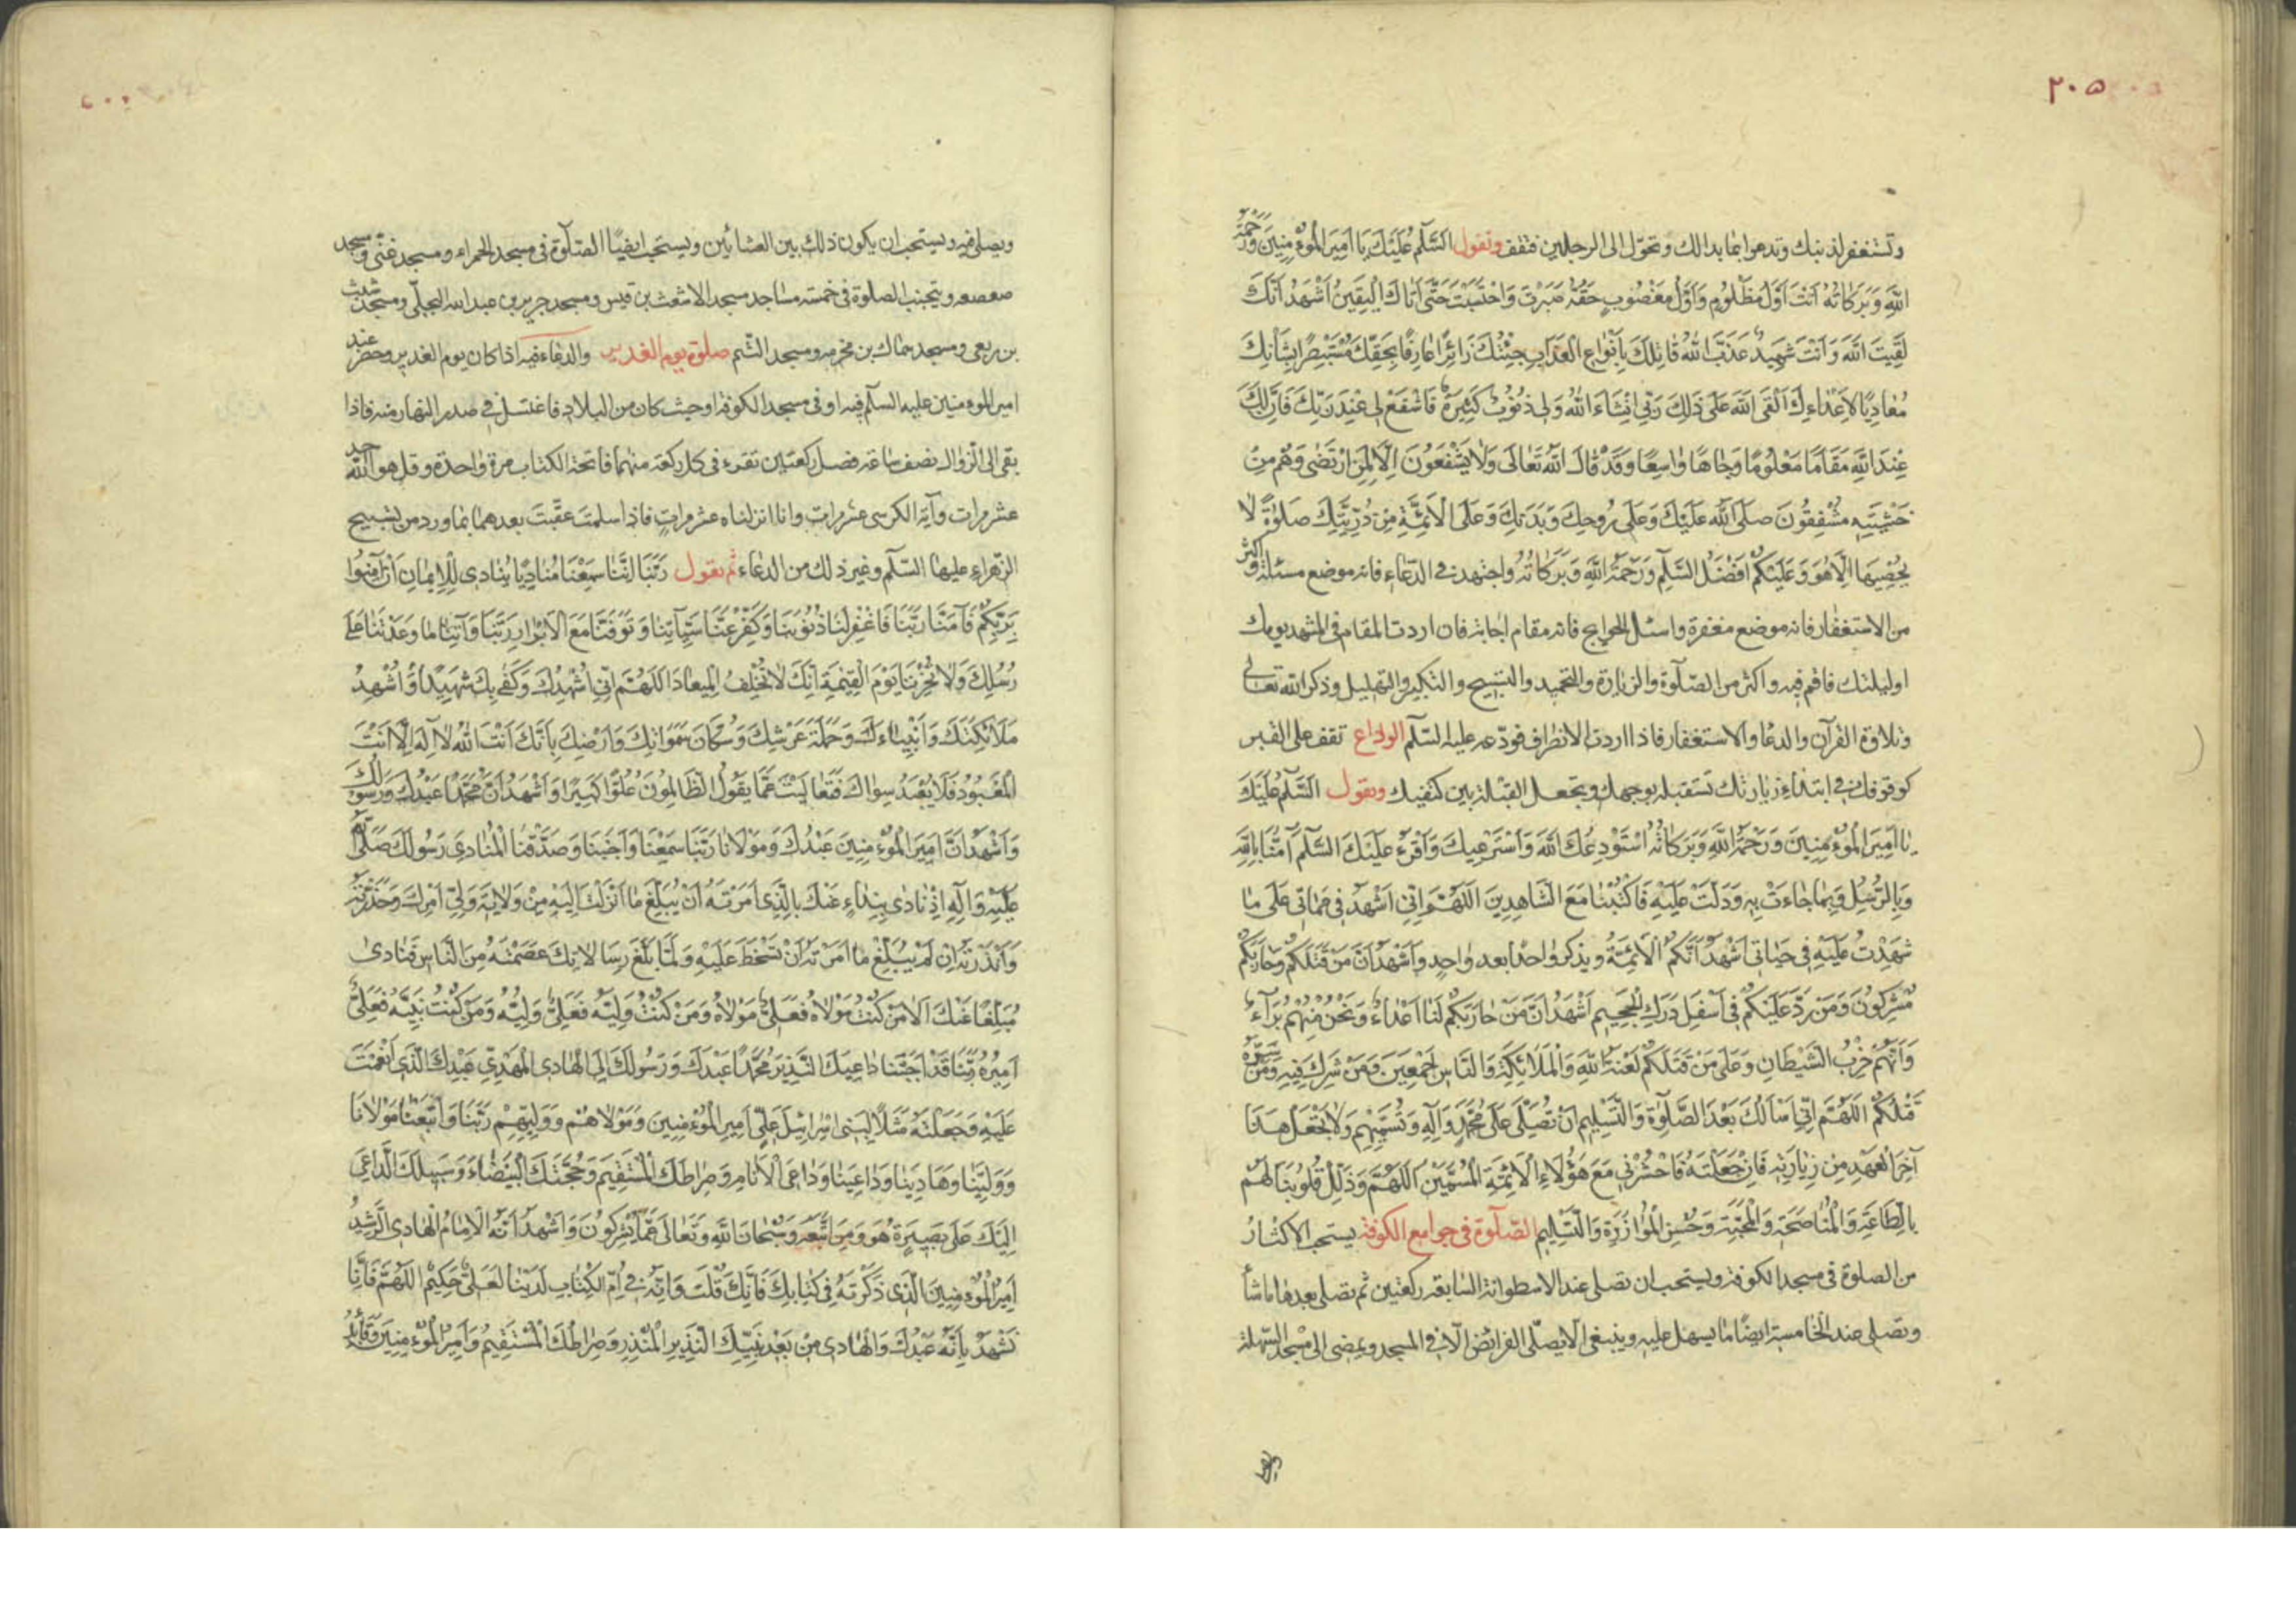 ٢٠٥
وتستغفر لذنبك وتدعوا بما بدالك وتحوّل الى الرجلين فتقف وتقول السَّلٰمُ عَلَيْكَ يَا اَمِيرَ الْمُؤْمِنِينَ وَرَحْمَةُ
اللّٰهِ وَبَرَكَاتُهُ اَنْتَ اَوَّلُ مَظْلُومٍ وَاَوَّلُ مَغْصُوبٍ حَقُّهُ صَبَرْتَ وَاحْتَسَبْتَ حَتّٰى اَتٰاكَ الْيَقِينُ اَشْهَدُ اَنَّكَ
لَقِيتَ اللّٰهَ وَاَنْتَ شَهِيدٌ عَذَّبَ اللّٰهُ قٰاتِلَكَ بِاَنْوٰاعِ الْعَذٰابِ جِئْتُكَ زٰائِرًا عٰارِفًا بِحَقِّكَ مُسْتَبْصِرًا بِشَأْنِكَ
مُعٰادِيًا لِاَعْدٰاءِكَ اَلْقَى اللّٰهَ عَلٰى ذٰلِكَ رَبِّي اِنْشَاءَ اللّٰهُ وَلِي ذُنُوبٌ كَثِيرَةٌ فَاشْفَعْ لِي عِنْدَ رَبِّكَ فَاِنَّ لَكَ
عِنْدَ اللّٰهِ مَقَامًا مَعْلُومًا وَجٰاهًا وٰاسِعًا وَقَدْ قٰالَ اللّٰهُ تَعٰالَى وَلٰا يَشْفَعُونَ اِلّٰا لِمَنِ ارْتَضٰى وَهُمْ مِنْ
خَشْيَتِهِ مُشْفِقُونَ صَلَّى اللّٰهُ عَلَيْكَ وَعَلٰى رُوحِكَ وَبَدَنِكَ وَعَلَى الْاَئِمَّةِ مِنْ ذُرِّيَّتِكَ صَلٰوةً لٰا
يُحْصِيهَا اِلّٰا هُوَ وَعَلَيْكُمْ اَفْضَلُ السَّلٰمِ وَرَحْمَةُ اللّٰهِ وَبَرَكٰاتُهُ واجتهد فى الدّعاء فانه موضع مسئلة واكثر
من الاستغفار فانه موضع مغفرة واسئل الحوايج فانه مقام اجابة فان اردت المقام فى المشهد يومك
اوليلتك فاقم فيه واكثر من الصّلوة والزيارة والتحميد والتسبيح والتكبير والتهليل وذكر الله تعالى
وتلاوة القرآن والدعا والاستغفار فاذا اردت الانطراف فودّعه عليه السّلم الوداع تقف على القبر
كوقوفك فى ابتداء زيارتك تستقبله بوجهك وتجعل القبلة بين كتفيك وتقول السَّلٰمُ عَلَيْكَ
يٰا اَمِيرَ الْمُؤْمِنِينَ وَرَحْمَةُ اللّٰهِ وَبَرَكٰاتُهُ اَسْتَوْدِعُكَ اللّٰهَ وَاَسْتَرْعِيكَ وَاَقْرَءُ عَلَيْكَ السَّلٰمَ اٰمَنَّا بِاللّٰهِ
وَبِالرُّسُلِ وَبِمٰا جٰاءَتْ بِهِ وَدَلَّتْ عَلَيْهِ فَاكْتُبْنٰا مَعَ الشَّاهِدِينَ اَللّٰهُمَّ اِنِّي اَشْهَدُ فِى مَمَاتِى عَلٰى مٰا
شَهِدْتُ عَلَيْهِ فِى حَيٰاتِى اَشْهَدُ اَنَّكُمُ الْاَئِمَّةُ ويذكر واحدًا بعد واحدٍ وَاَشْهَدُ اَنَّ مَنْ قَتَلَكُمْ وَحٰارَبَكُمْ
مُشْرِكُونَ وَمَنْ رَدَّ عَلَيْكُمْ فِى اَسْفَلِ دَرَكِ الْجَحِيمِ اَشْهَدُ اَنَّ مَنْ حٰارَبَكُمْ لَنٰا اَعْدٰاءٌ وَنَحْنُ مِنْهُمْ بُرَآءُ
وَاَنَّهُمْ حِزْبُ الشَّيْطَانِ وَعَلٰى مَنْ قَتَلَكُمْ لَعْنَةُ اللّٰهِ وَالْمَلَائِكَةِ وَالنَّاسِ اَجْمَعِينَ وَمَنْ شَرِكَ فِيهِ وَمَنْ سَرَّهُ
قَتْلُكُمْ اَللّٰهُمَّ اِنِّي اَسْأَلُكَ بَعْدَ الصَّلٰوةِ وَالتَّسْلِيمِ اَنْ تُصَلِّىَ عَلٰى مُحَمَّدٍ وَآلِهِ وَتُسَمِّيهِمْ وَلٰا تَجْعَلْ هٰذَا
آخِرَ الْعَهْدِ مِنْ زِيٰارَتِهِ فَاِنْ جَعَلْتَهُ فَاحْشُرْنِى مَعَ هٰؤُلَاءِ الْاَئِمَّةِ الْمُسَمَّيْنَ اَللّٰهُمَّ وَذَلِّلْ قُلُوبَنَا لَهُمْ
بِالطَّاعَةِ وَالْمُنٰاصَحَةِ وَالْمَحَبَّةِ وَحُسْنِ الْمُوٰازَرَةِ وَالتَّسْلِيمِ الصّلوة فى جوامع الكوفة يستحب الاكثار
من الصلوة فى مسجد الكوفة ويستحب ان تصلى عند الاسطوانة السابعة ركعتين ثم تصلى بعدها ماشأ
وتصلى عند الخامسة ايضًا ما يسهل عليه وينبغى الّا يصلّى الفرائض الّا فى المسجد ويمضى الى مسجد السّهلة
ويصلى
ويصلى فيه ويستحب ان يكون ذلك بين العشائين ويستحب ايضًا الصّلوة فى مسجد الحمراء ومسجد غنىّ ومسجد
صعصعه ويتجنب الصلوة فى خمسة مساجد مسجد الاشعث بن قيس ومسجد جرير بن عبدالله البجلّى ومسجد شبث
بن ربعى ومسجد سماك بن مخرمه ومسجد التّيم صلوة يوم الغدير والدعاء فيه اذا كان يوم الغدير وحضر عند
امير المؤمنين عليه السلٰم فيه او فى مسجد الكوفة او حيث كان من البلاد فاغتسل فى صدر النهار منه فاذا
بقى الى الزوال نصف ساعة فصل ركعتين تقرء فى كل ركعة منهما فاتحة الكتاب مرة واحدة وقل هو الله احد
عشر مرات وآية الكرسى عشر مرات وانا انزلناه عشر مراتٍ فاذا سلمت عقّبت بعدهما بما ورد من تسبيح
الزهراء عليها السّلٰم وغير ذلك من الدعاء ثم تقول رَبَّنَا اِنَّنٰا سَمِعْنٰا مُنٰادِيًا يُنٰادِى لِلْاِيمٰانِ اَنْ اٰمِنُوا
بِرَبِّكُمْ فَاٰمَنَّا رَبَّنَا فَاغْفِرْ لَنٰا ذُنُوبَنٰا وَكَفِّرْ عَنّٰا سَيِّآتِنٰا وَتَوَفَّنٰا مَعَ الْاَبْرٰارِ رَبَّنٰا وَآتِنٰا مٰا وَعَدْتَنٰا عَلٰى
رُسُلِكَ وَلٰا تُخْزِنَا يَوْمَ الْقِيٰمَةِ اِنَّكَ لٰا تُخْلِفُ الْمِيعَادَ اَللّٰهُمَّ اِنِّي اُشْهِدُكَ وَكَفٰى بِكَ شَهِيدًا وَاُشْهِدُ
مَلَائِكَتَكَ وَاَنْبِيٰاءَكَ وَحَمَلَةَ عَرْشِكَ وَسُكّٰانَ سَمَوٰاتِكَ وَاَرْضِكَ بِاَنَّكَ اَنْتَ اللّٰهُ لٰا اِلٰهَ اِلَّا اَنْتَ
الْمَعْبُودُ فَلَا يُعْبَدُ سِوٰاكَ فَتَعٰالَيْتَ عَمّٰا يَقُولُ الظَّالِمُونَ عُلُوًّا كَبِيرًا وَاَشْهَدُ اَنَّ مُحَمَّدًا عَبْدُكَ وَرَسُولُكَ
وَاَشْهَدُ اَنَّ اَمِيرَ الْمُؤْمِنِينَ عَبْدُكَ وَمَوْلَانٰا رَبَّنَا سَمِعْنَا وَاَجَبْنَا وَصَدَّقْنَا الْمُنٰادِىَ رَسُولَكَ صَلَّى اللّٰهُ
عَلَيْهِ وَآلِهِ اِذْ نٰادٰى بِنِدٰاءٍ عَنْكَ بِالَّذِى اَمَرْتَهُ اَنْ يُبَلِّغَ مٰا اَنْزَلْتَ اِلَيْهِ مِنْ وَلٰايَةِ وَلِيِّ اَمْرِكَ وَحَذَّرْتَهُ
وَاَنْذَرْتَهُ اِنْ لَمْ يُبَلِّغْ مٰا اَمَرْتَهُ اَنْ تَسْخَطَ عَلَيْهِ وَلَمَّا بَلَّغَ رِسَالٰاتِكَ عَصَمْتَهُ مِنَ النَّاسِ فَنٰادٰى
مُبَلِّغًا عَنْكَ اَلٰا مَنْ كُنْتُ مَوْلٰاهُ فَعَلِىٌّ مَوْلٰاهُ وَمَنْ كُنْتُ وَلِيَّهُ فَعَلِىٌّ وَلِيُّهُ وَمَنْ كُنْتُ نَبِيَّهُ فَعَلِىٌّ
اَمِيرُهُ رَبَّنَا قَدْ اَجَبْنٰا دٰاعِيَكَ النَّذِيرَ مُحَمَّدًا عَبْدَكَ وَرَسُولَكَ اِلَى الْهٰادِى الْمَهْدِيِّ عَبْدِكَ الَّذِى اَنْعَمْتَ
عَلَيْهِ وَجَعَلْتَهُ مَثَلًا لِبَنِى اِسْرٰائِيلَ عَلِيٍّ اَمِيرِ الْمُؤْمِنِينَ وَمَوْلٰاهُمْ وَوَلِيِّهِمْ رَبَّنَا وَاتَّبَعْنٰا مَوْلٰانَا
وَوَلِيَّنٰا وَهَادِيَنٰا وَدٰاعِيَنٰا وَدٰاعِىَ الْاَنٰامِ وَصِرٰاطَكَ الْمُسْتَقِيمَ وَحُجَّتَكَ الْبَيْضٰاءَ وَسَبِيلَكَ الدّٰاعِىَ
اِلَيْكَ عَلٰى بَصِيرَةٍ هُوَ وَمَنِ اتَّبَعَهُ وَسُبْحَانَ اللّٰهِ وَتَعٰالَى عَمّٰا يُشْرِكُونَ وَاَشْهَدُ اَنَّهُ الْاِمٰامُ الْهٰادِى الرَّشِيدُ
اَمِيرُ الْمُؤْمِنِينَ الَّذِى ذَكَرْتَهُ فِى كِتٰابِكَ فَاِنَّكَ قُلْتَ وَاِنَّهُ فِى اُمِّ الْكِتٰابِ لَدَيْنٰا لَعَلِىٌّ حَكِيمٌ اَللّٰهُمَّ فَاِنّٰا
نَشْهَدُ بِاَنَّهُ عَبْدُكَ وَالْهٰادِى مِنْ بَعْدِ نَبِيِّكَ النَّذِيرِ الْمُنْذِرِ وَصِرٰاطُكَ الْمُسْتَقِيمُ وَاَمِيرُ الْمُؤْمِنِينَ وَقَائِدُ